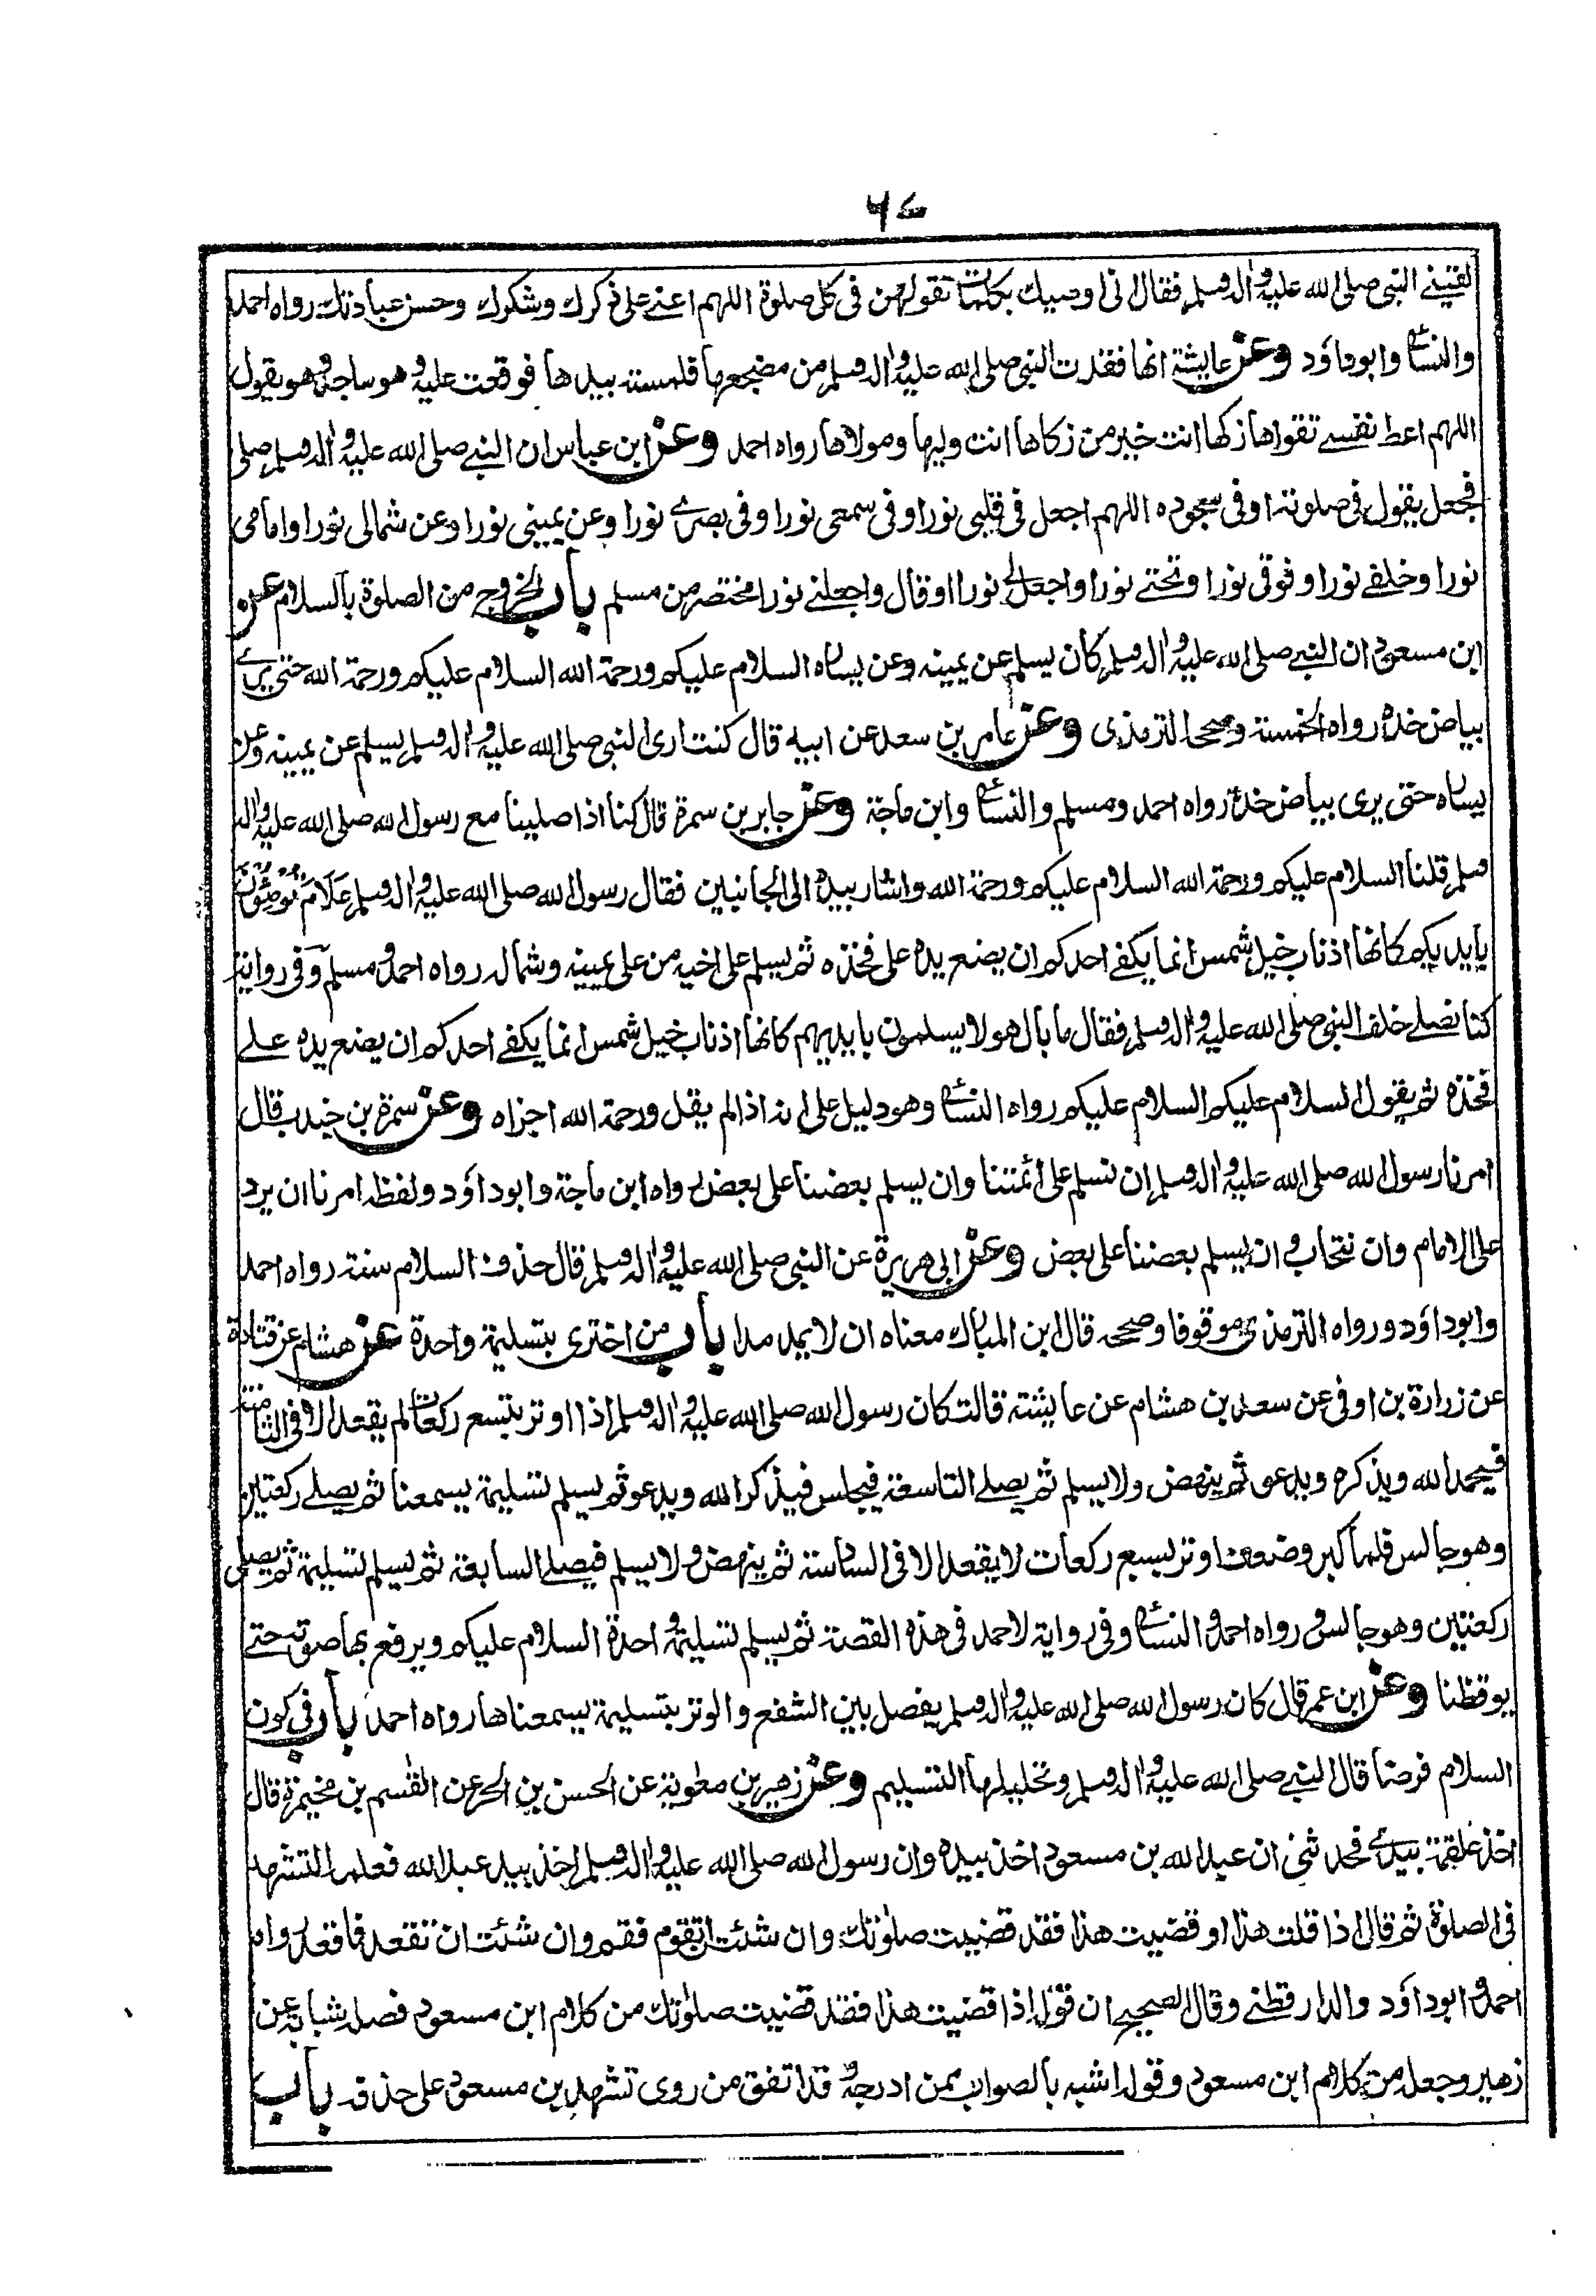 ۶۷
لقينے النبي صلى الله عليه واله وسلم فقال انى اوصيك بكلمات تقولهن فى كل صلوة اللهم اعنے على ذكرك وشكرك وحسن عبادتك رواه احمد
والنسائى وابوداؤد وعن عايشة انها فقدت النبي صلى الله عليه واله وسلم من مضجعها فلمسته بيدها فوقعت عليه وهو ساجد وهو يقول
اللهم اعط نفسے تقواها زكها انت خير من زكاها انت وليها ومولاها رواه احمد وعن ابن عباس ان النبے صلى الله عليه واله وسلم صلى
فجعل يقول فى صلوته او فى سجوده اللهم اجعل فى قلبى نورا وفى سمعى نورا وفى بصرے نورا وعن يمينى نورا وعن شمالى نورا وامامى
نورا وخلفے نورا وفوقى نورا وتحتے نورا واجعل لى نورا او قال واجعلنے نورا مختصر من مسلم باب الخروج من الصلوة بالسلام عن
ابن مسعود ان النبے صلى الله عليه واله وسلم كان يسلم عن يمينه وعن يساره السلام عليكم ورحمة الله السلام عليكم ورحمة الله حتى يرے
بياض خده رواه الخمسة وصححه الترمذى وعن عامر بن سعد عن ابيه قال كنت ارى النبى صلى الله عليه واله وسلم يسلم عن يمينه وعن
يساره حتى يرى بياض خده رواه احمد ومسلم والنسائى وابن ماجة وعن جابر بن سمرة قال كنا اذا صلينا مع رسول الله صلى الله عليه واله
وسلم قلنا السلام عليكم ورحمة الله السلام عليكم ورحمة الله واشار بيده الى الجانبين فقال رسول الله صلى الله عليه واله وسلم عَلَامَ تُومِئُونَ
بايديكم كانها اذناب خيل شمس انما يكفے احدكم ان يضع يده على فخذه ثم يسلم على اخيه من على يمينه وشماله رواه احمد ومسلم وفى رواية
كنا نصلے خلف النبى صلى الله عليه واله وسلم فقال ما بال هولا يسلمون بايديهم كانها اذناب خيل شمس انما يكفے احدكم ان يضع يده علے
فخذه ثم يقول السلام عليكم السلام عليكم رواه النسائى وهو دليل على انه اذا لم يقل ورحمة الله اجزاه وعن سمرة بن جندب قال
امرنا رسول الله صلى الله عليه واله وسلم ان نسلم على ائمتنا وان يسلم بعضنا على بعض رواه ابن ماجة وابوداؤد ولفظه امرنا ان نرد
على الامام وان نتحاب وان يسلم بعضنا على بعض وعن ابى هريرة عن النبى صلى الله عليه واله وسلم قال حذف السلام سنة رواه احمد
وابوداؤد ورواه الترمذى موقوفا وصححه قال ابن المبارك معناه ان لا يمد مدا باب من اجترى بتسليمة واحدة عن هشام عن قتادة
عن زرارة بن اوفى عن سعد بن هشام عن عايشة قالت كان رسول الله صلى الله عليه واله وسلم اذا اوتر بتسع ركعات لم يقعد الا فى الثامنة
فيحمد الله ويذكره ويدعو ثم ينهض ولا يسلم ثم يصلے التاسعة فيجلس فيذكر الله ويدعو ثم يسلم تسليمة يسمعنا ثم يصلے ركعتين
وهو جالس فلما كبر وضعف اوتر بسبع ركعات لا يقعد الا فى السادسة ثم ينهض ولا يسلم فيصلے السابعة ثم يسلم تسليمة ثم يصلى
ركعتين وهو جالس رواه احمد والنسائى وفى رواية لاحمد فى هذه القصة ثم يسلم تسليمة واحدة السلام عليكم ويرفع بها صوته حتے
يوقظنا وعن ابن عمر قال كان رسول الله صلى الله عليه واله وسلم يفصل بين الشفع والوتر بتسليمة يسمعناها رواه احمد باب فى كون
السلام فرضا قال النبے صلى الله عليه واله وسلم وتحليلها التسليم وعن زهير بن معوية عن الحسن بن الحر عن القسم بن مخيمرة قال
اخذ علقمة بيدے فحدثنى ان عبد الله بن مسعود اخذ بيده وان رسول الله صلى الله عليه واله وسلم اخذ بيد عبد الله فعلمه التشهد
فى الصلوة ثم قال اذا قلت هذا او قضيت هذا فقد قضيت صلوتك وان شئت ان تقوم فقم وان شئت ان تقعد فاقعد رواه
احمد وابوداؤد والدارقطنے وقال الصحيح ان قوله اذا قضيت هذا فقد قضيت صلوتك من كلام ابن مسعود فصله شبابة عن
زهير وجعله من كلام ابن مسعود وقوله اشبه بالصواب ممن ادرجه قد اتفق من روى تشهد بن مسعود على حذفه باب